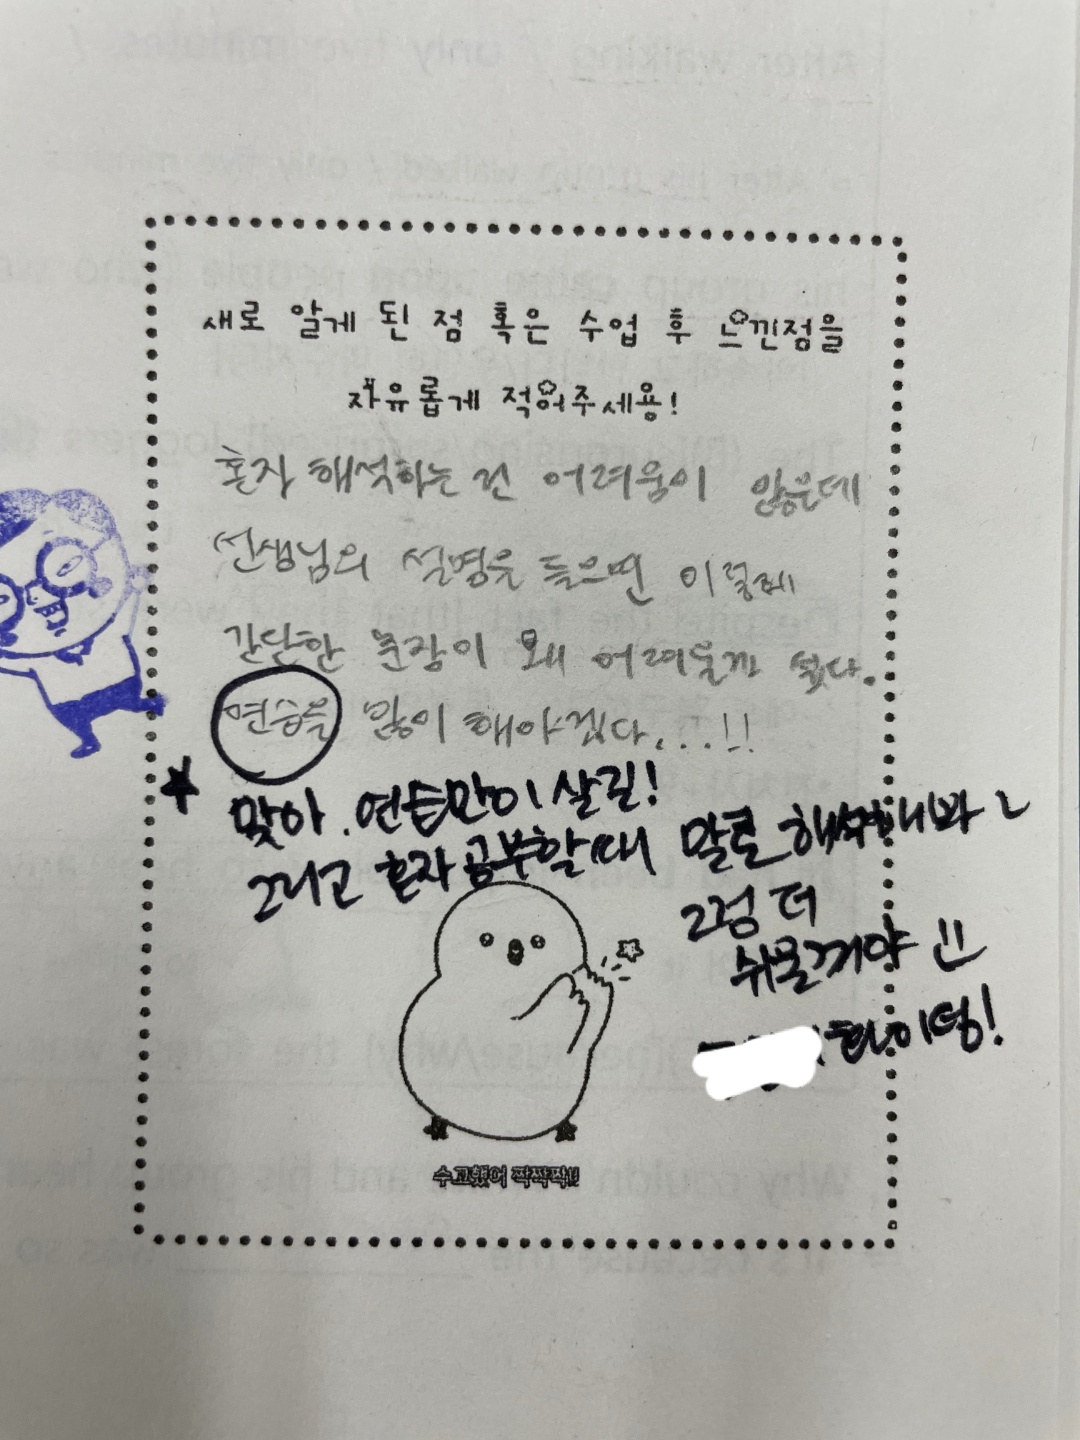 새로 알게 된 점 혹은 수업 후 느낀점을
자유롭게 적어주세용!
혼자 해석하는 건 어려움이 많은데
선생님의 설명을 들으면 이렇게
간단한 문장이 왜 어려울까 싶다.
연습을 많이 해야겠다...!!
맞아. 연습만이 살길!
그리고 혼자 공부할때 말로 해석해봐~
그럼 더
쉬울꺼야 !!
화이팅!
수고했어 짝짝짝!!